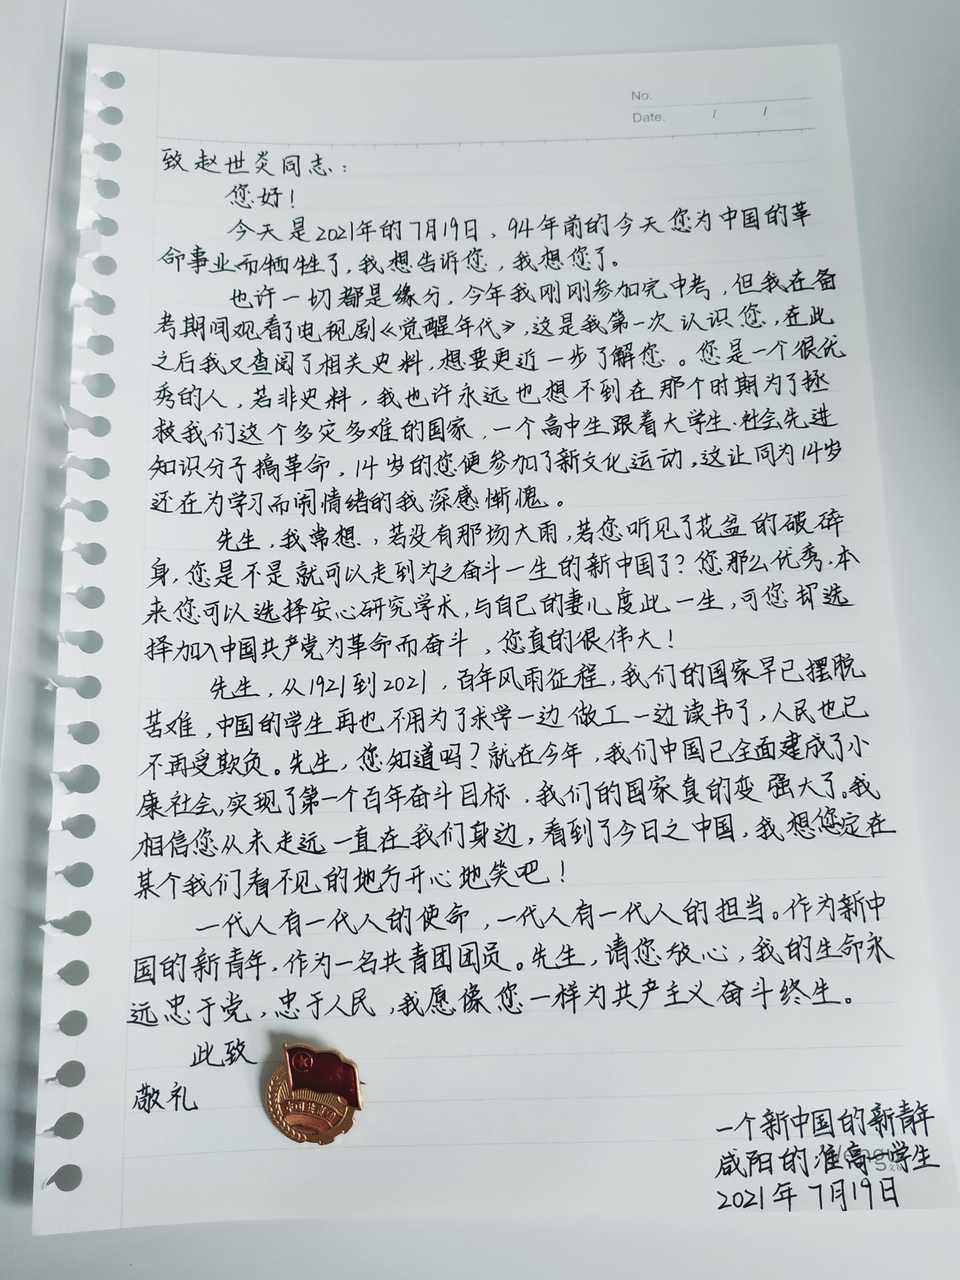 No.
Date. / /
致赵世炎同志:
您好!
今天是2021年的7月19日,94年前的今天您为中国的革
命事业而牺牲了,我想告诉您,我想您了。
也许一切都是缘分,今年我刚刚参加完中考,但我在备
考期间观看了电视剧《觉醒年代》,这是我第一次认识您,在此
之后我又查阅了相关史料,想要更近一步了解您。您是一个很优
秀的人,若非史料,我也许永远也想不到在那个时期为了拯
救我们这个多灾多难的国家,一个高中生跟着大学生.社会先进
知识分子搞革命,14岁的您便参加了新文化运动,这让同为14岁
还在为学习而闹情绪的我深感惭愧。
先生,我常想,若没有那场大雨,若您听见了花盆的破碎
身,您是不是就可以走到为之奋斗一生的新中国了?您那么优秀.本
来您可以选择安心研究学术,与自己的妻儿度此一生,可您却选
择加入中国共产党为革命而奋斗,您真的很伟大!
先生,从1921到2021,百年风雨征程,我们的国家早已摆脱
苦难,中国的学生再也不用为了求学一边做工一边读书了,人民也已
不再受欺负。先生,您知道吗?就在今年,我们中国已全面建成了小
康社会,实现了第一个百年奋斗目标,我们的国家真的变强大了。我
相信您从未走远一直在我们身边,看到了今日之中国,我想您定在
某个我们看不见的地方开心地笑吧!
一代人有一代人的使命,一代人有一代人的担当。作为新中
国的新青年,作为一名共青团团员。先生,请您放心,我的生命永
远忠于党,忠于人民,我愿像您一样为共产主义奋斗终生。
此致
敬礼
一个新中国的新青年
咸阳的准高一学生
2021年7月19日